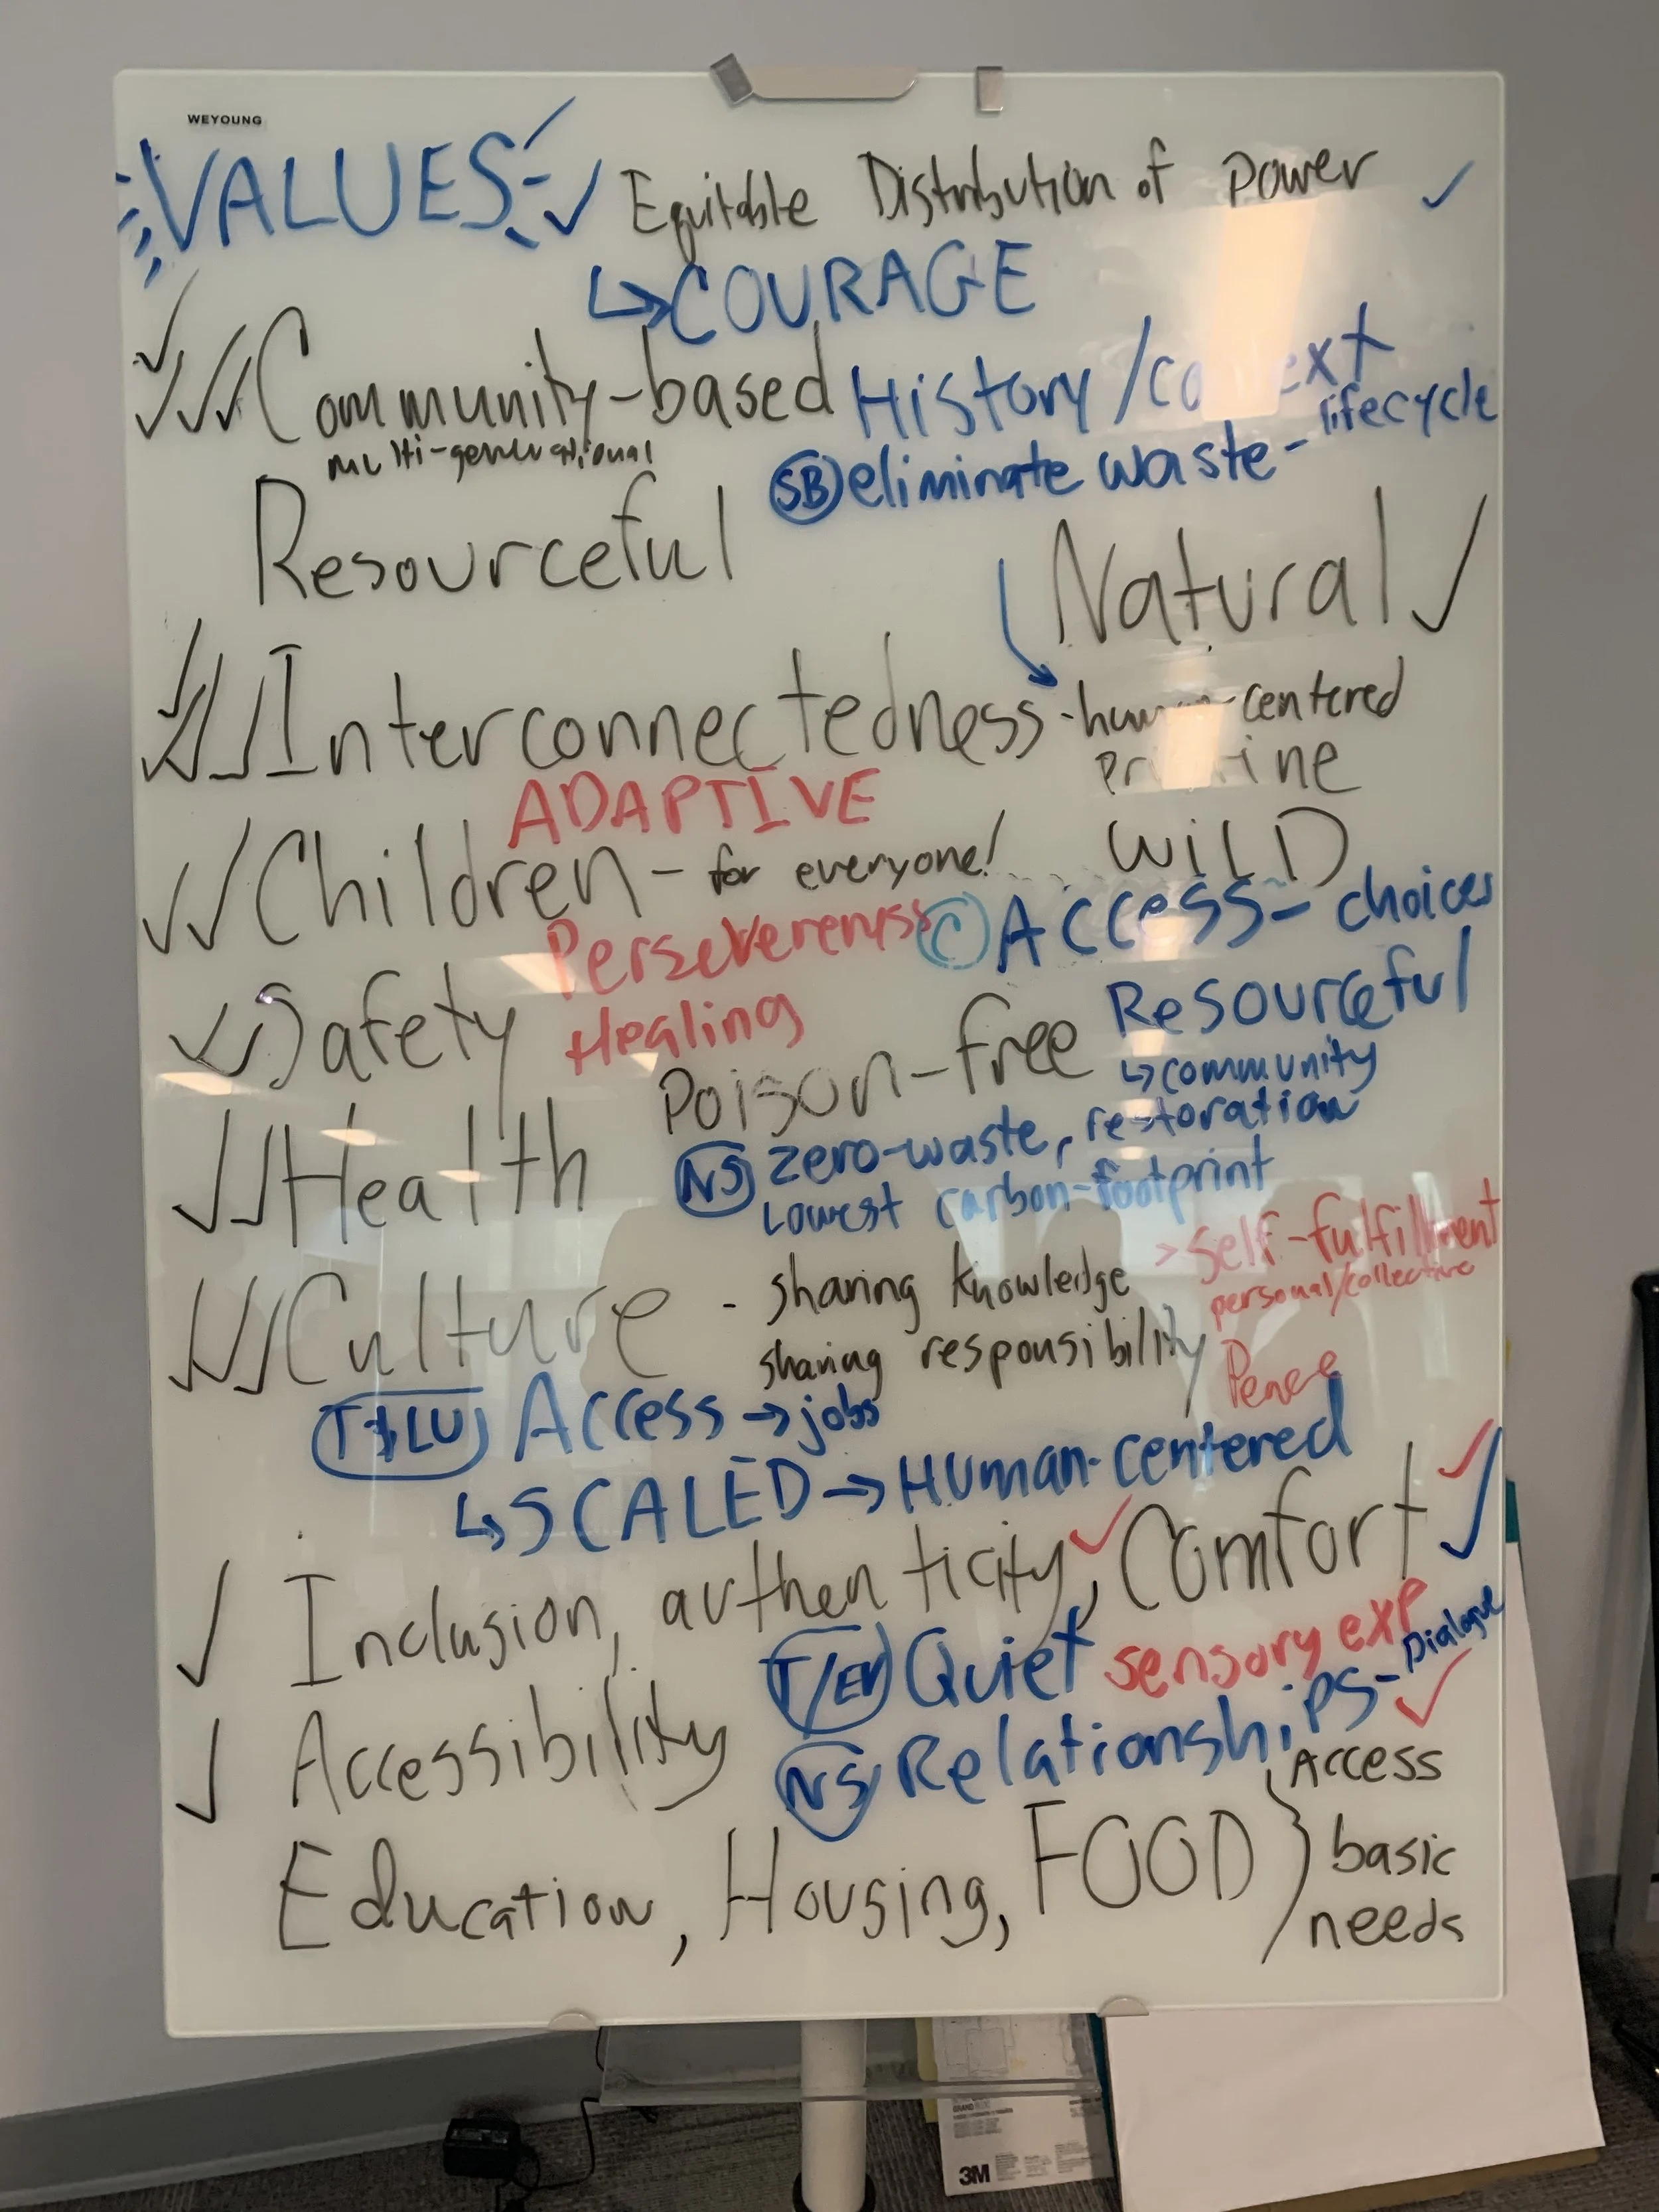 WEYOUNG
VALUES ✓ Equitable Distribution of power ✓
↳ COURAGE
✓✓✓✓ Community-based History /
multi-generational
SB eliminate waste - lifecycle
Resourceful
Natural ✓
✓✓✓✓ Interconnectedness
-human-centered
ADAPTIVE
WILD
✓✓ Children - for everyone!
Persevereness
C Access - choices
✓✓ Safety
Healing
Poison-free
Resourceful
↳ community
restoration
✓✓ Health
NS zero-waste,
Lowest carbon-footprint
✓✓✓ Culture - sharing knowledge
sharing responsibility
> Self-fulfillment
personal/collective
Peace
T+LU Access → jobs
↳ SCALED → Human-centered
✓ Inclusion, authenticity ✓, Comfort ✓✓
Quiet sensory exp
✓ Accessibility
NS Relationships - Dialogue ✓
Education, Housing, FOOD } Access
basic
needs
3M